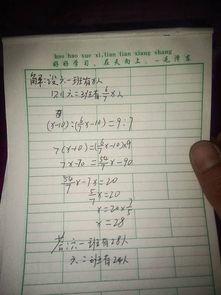 hao hao xue xi, tian tian xiang shang
好好学习、在天向上、—毛泽东
解:设六一班有x人
则六二班有6/7x人
(x-10):(6/7x-10)=9:7
7(x-10)=(6/7x-10)×9
7x-70=54/7x-90
54/7x-7x=20
5/7x=20
x=20×7/5
x=28
答:六一班有28人
六二班有24人